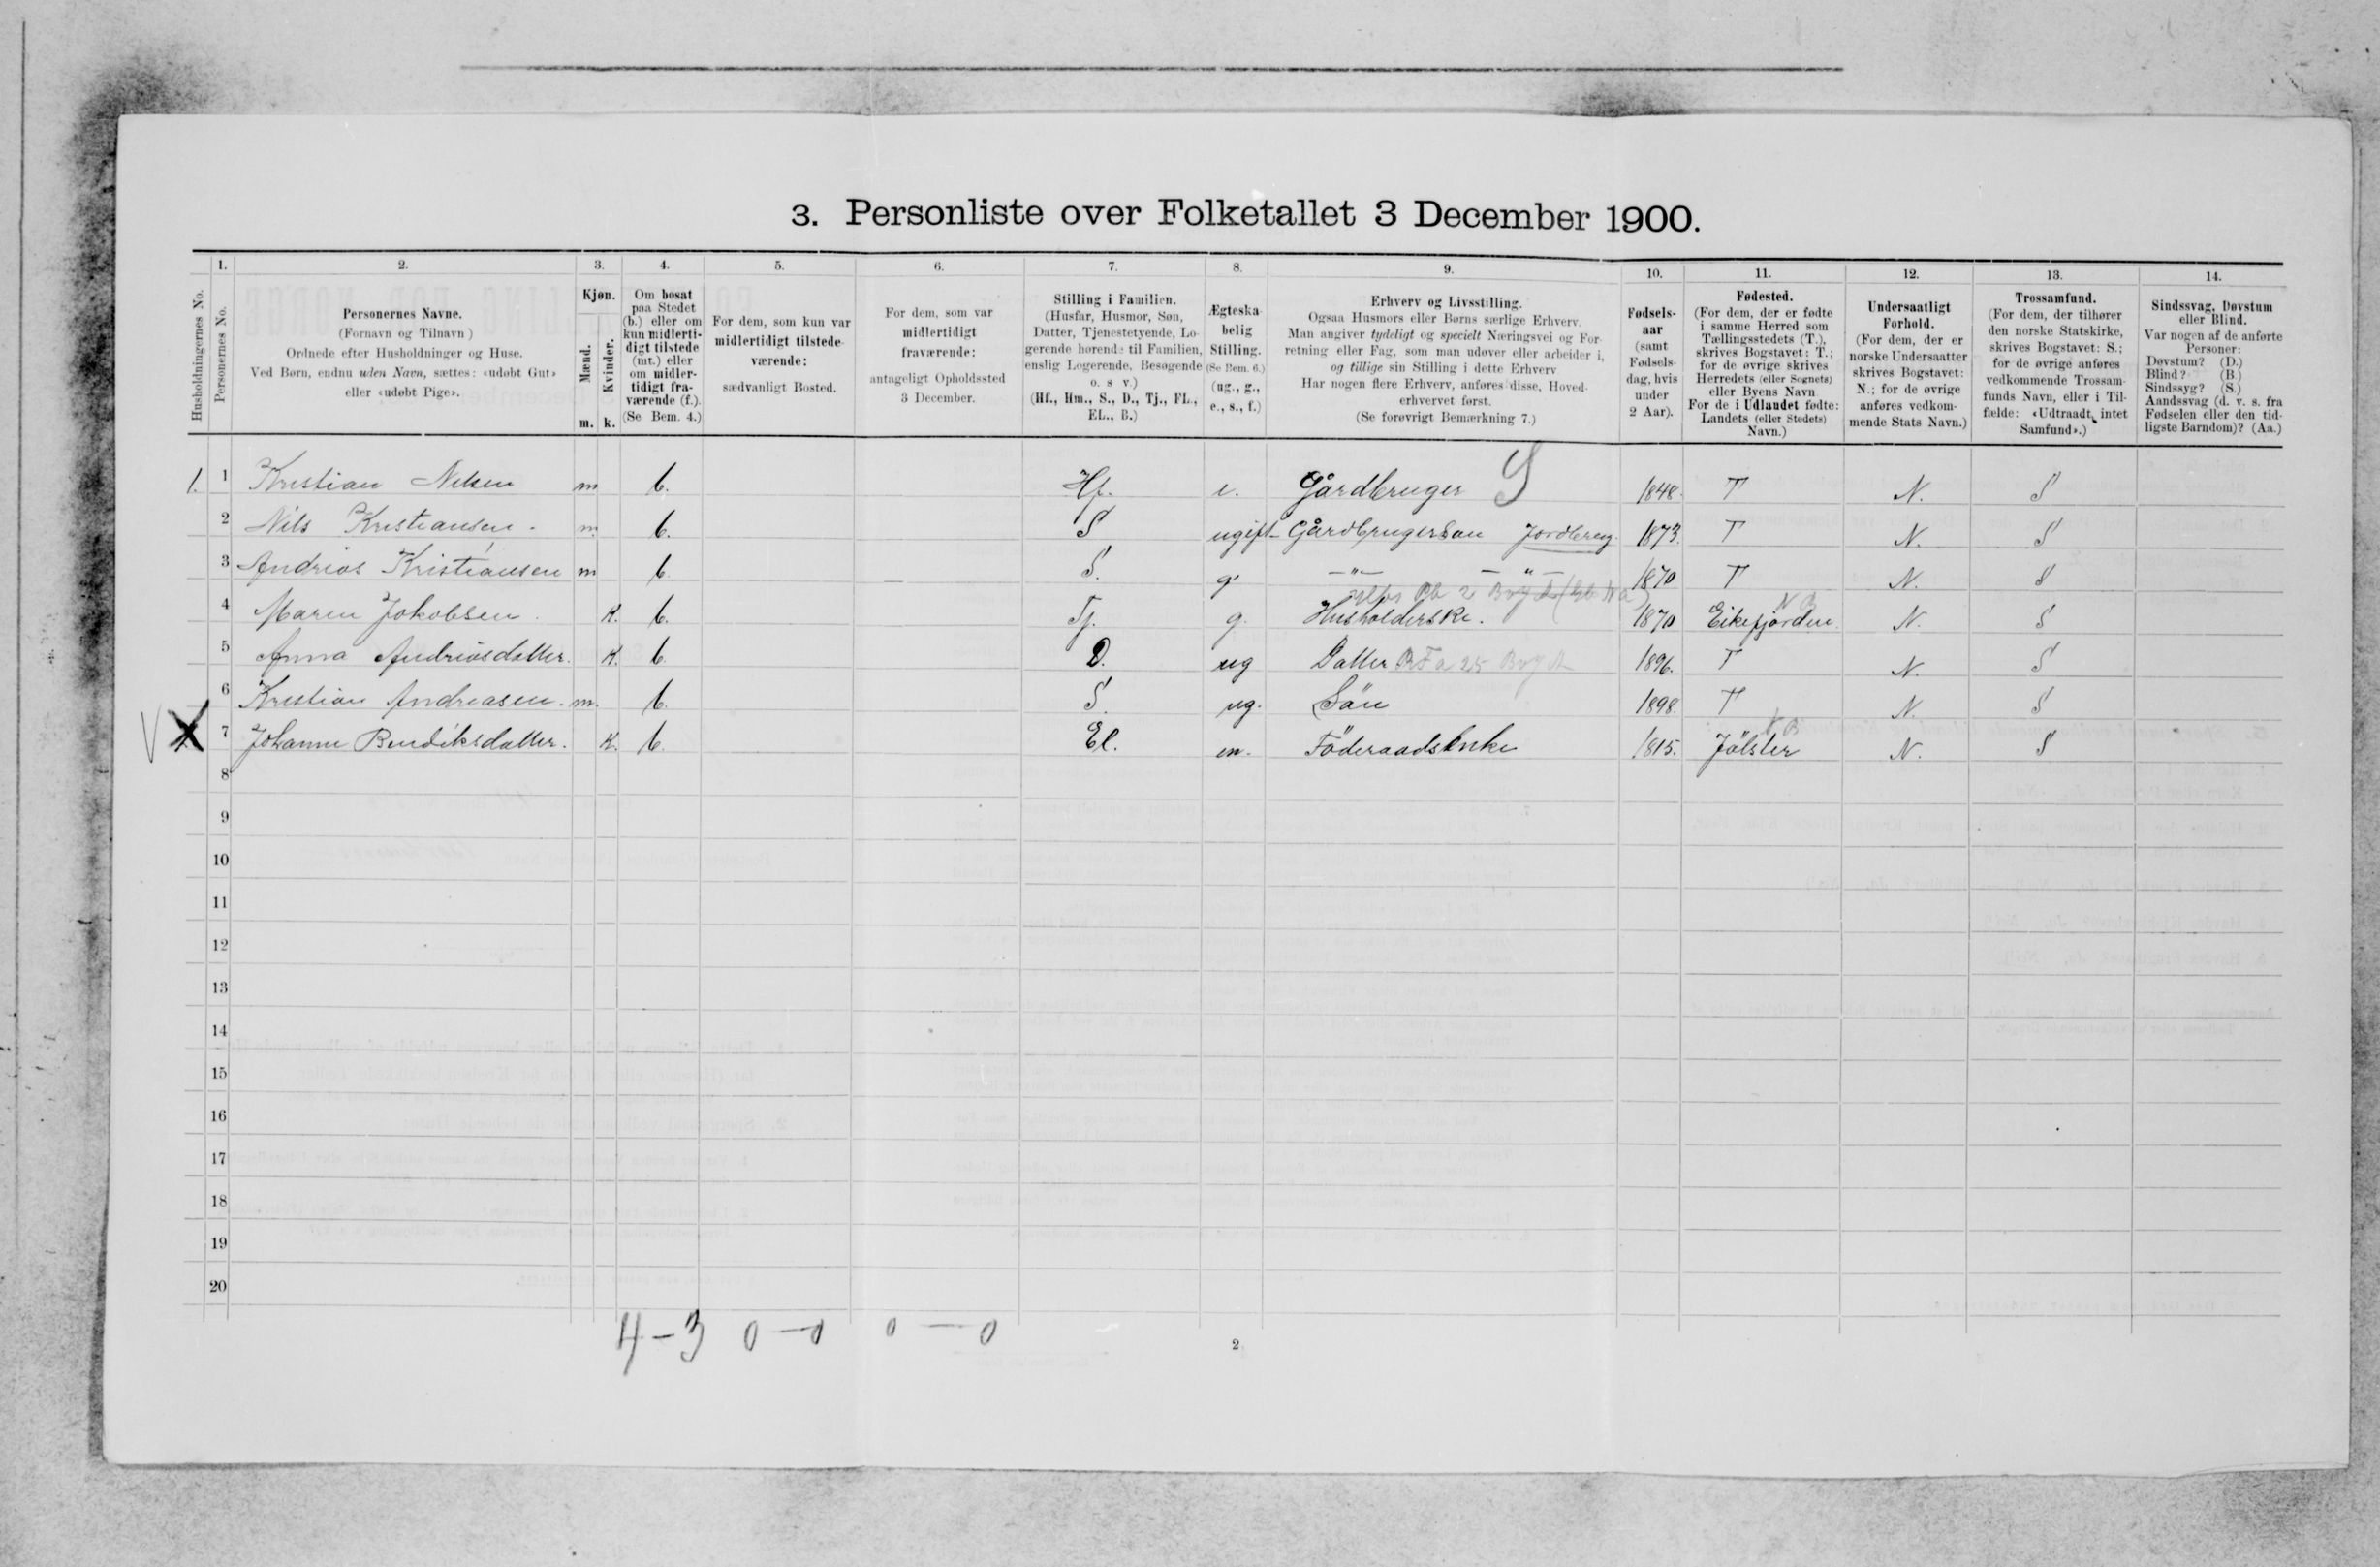 3. Personliste over Folketallet 3 December 1900.
1. 2. 3. 4. 5. 6. 7. 8. 9. 10. 11. 12. 13. 14.
Husholdningernes No.
Personernes No.
Personernes Navne.
(Fornavn og Tilnavn)
Ordnede efter Husholdninger og Huse.
Ved Børn, endnu uden Navn, sættes: «udøbt Gut»
eller «udøbt Pige».
Kjøn.
Mænd.
Kvinder.
m. k.
Om bosat
paa Stedet
(b.) eller om
kun midlerti-
digt tilstede
(mt.) eller
om midler-
tidigt fra-
værende (f.).
(Se Bem. 4.)
For dem, som kun var
midlertidigt tilstede-
værende:
sædvanligt Bosted.
For dem, som var
midlertidigt
fraværende:
antageligt Opholdssted
3 December.
Stilling i Familien.
(Husfar, Husmor, Søn,
Datter, Tjenestetyende, Lo-
gerende hørende til Familien,
enslig Logerende, Besøgende
o. s v.)
(Hf., Hm., S., D., Tj., FL.,
EL., B.)
Ægteska-
belig
Stilling.
(Se Bem. 6.)
(ug., g.,
e., s., f.)
Erhverv og Livsstilling.
Ogsaa Husmors eller Børns særlige Erhverv.
Man angiver tydeligt og specielt Næringsvei og For-
retning eller Fag, som man udøver eller arbeider i,
og tillige sin Stilling i dette Erhverv
Har nogen flere Erhverv, anføres disse, Hoved-
erhvervet først.
(Se forøvrigt Bemærkning 7.)
Fødsels-
aar
(samt
Fødsels-
dag, hvis
under
2 Aar).
Fødested.
(For dem, der er fødte
i samme Herred som
Tællingsstedets (T.),
skrives Bogstavet: T.;
for de øvrige skrives
Herredets (eller Sognets)
eller Byens Navn
For de i Udlandet fødte:
Landets (eller Stedets)
Navn.)
Undersaatligt
Forhold.
(For dem, der er
norske Undersaatter
skrives Bogstavet:
N.; for de øvrige
anføres vedkom-
mende Stats Navn.)
Trossamfund.
(For dem, der tilhører
den norske Statskirke,
skrives Bogstavet: S.;
for de øvrige anføres
vedkommende Trossam-
funds Navn, eller i Til-
fælde: «Udtraadt, intet
Samfund».)
Sindssvag, Døvstum
eller Blind.
Var nogen af de anførte
Personer:
Døvstum? (D.)
Blind? (B.)
Sindssyg? (S.)
Aandssvag (d. v. s. fra
Fødselen eller den tid-
ligste Barndom)? (Aa.)
1. 1 Kristian Nilsen m b. Hf. e. Gårdbruger S 1848. T N. S
2 Nils Kristiansen. m. b. S ugift Gårdbrugersøn Jordbrug. 1873. T N. S
3 Andrias Kristiansen m b S. g. —"— —"— 1870 T N. S
4 Maren Jakobsen. K. b. Tj. g. Husholderske. 1870 Eikefjorden. N B N. S
5 Anna Andriasdatter. K. b. D. ug Datter 1896. T N. S
6 Kristian Andreasen. m. b. S. ug. Sön 1898. T N. S
V X 7 Johanne Bendiksdatter. K. b. El. en. Föderaadsenke 1815. Jölster N B N. S
8
9
10
11
12
13
14
15
16
17
18
19
20
4 – 3 0 – 0 0 – 0
2